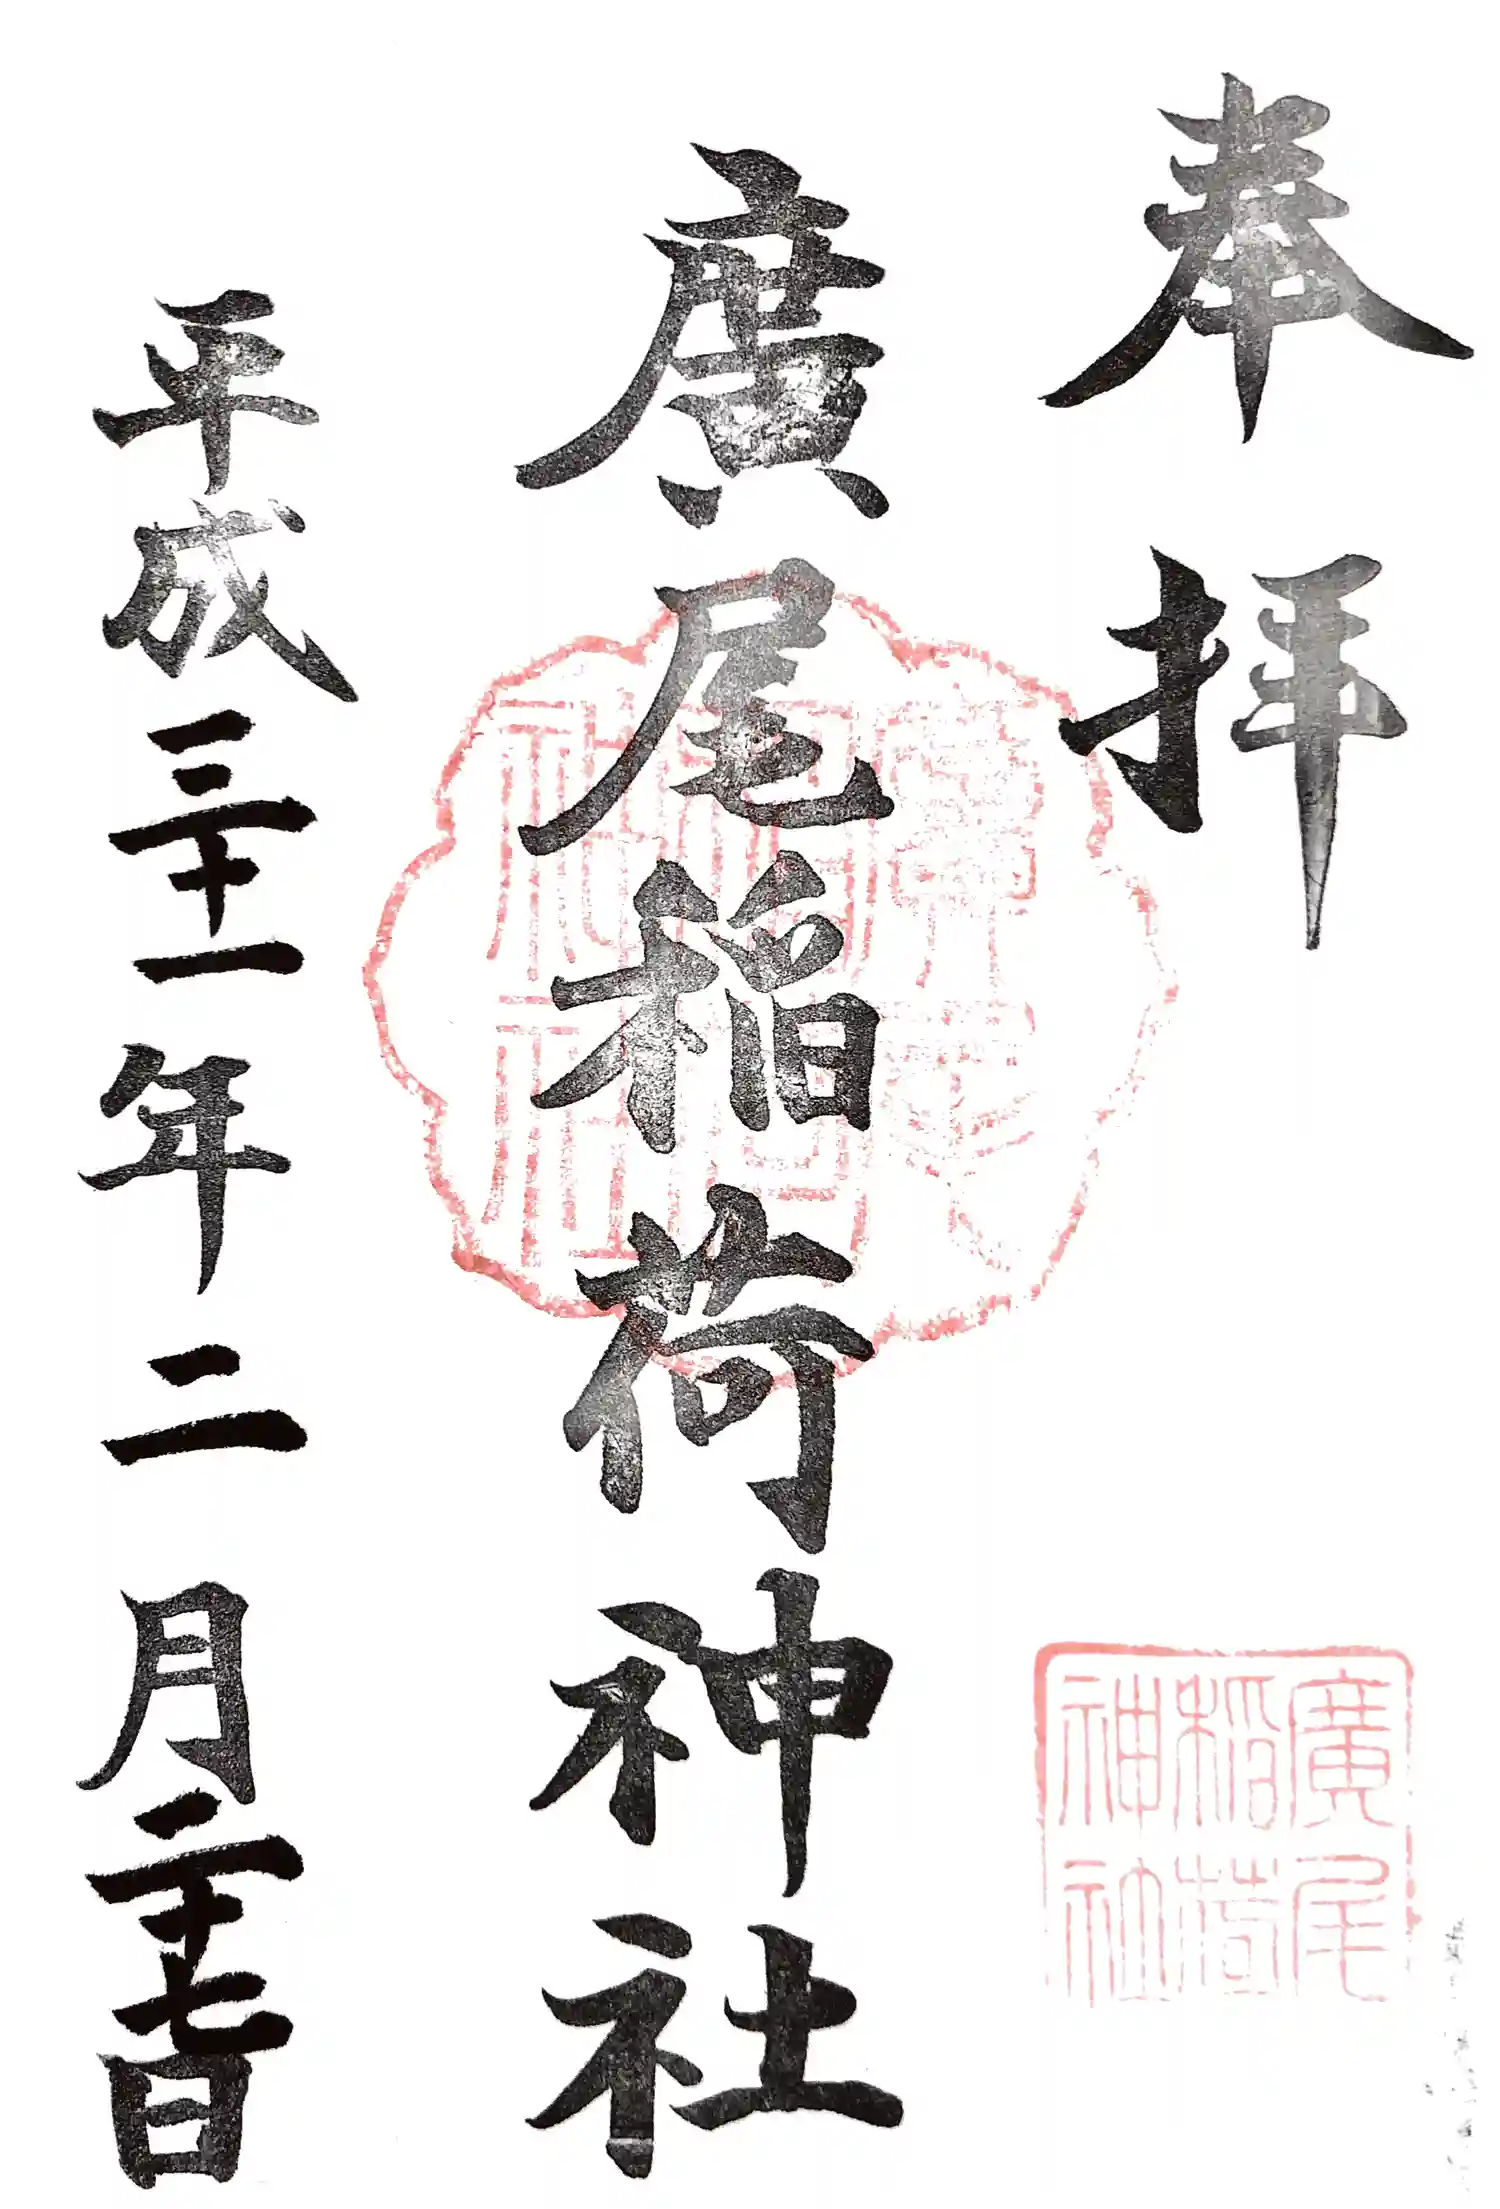 奉拝
廣尾稲荷神社
平成三十一年二月二十七日
廣尾
稲荷
神社